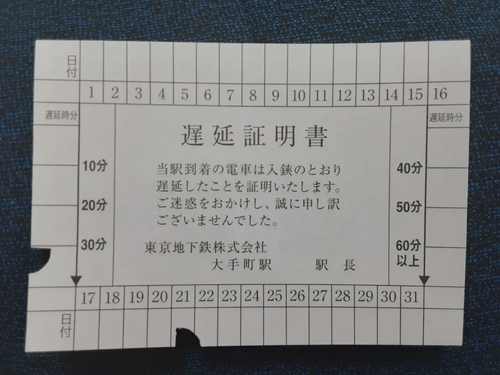 日付
1 2 3 4 5 6 7 8 9 10 11 12 13 14 15 16
遅延時分 遅延時分
遅延証明書
10分 40分
当駅到着の電車は入鋏のとおり
遅延したことを証明いたします。
20分 50分
ご迷惑をおかけし、誠に申し訳
ございませんでした。
30分 60分
以上
東京地下鉄株式会社
大手町駅 駅長
17 18 19 20 21 22 23 24 25 26 27 28 29 30 31
日付